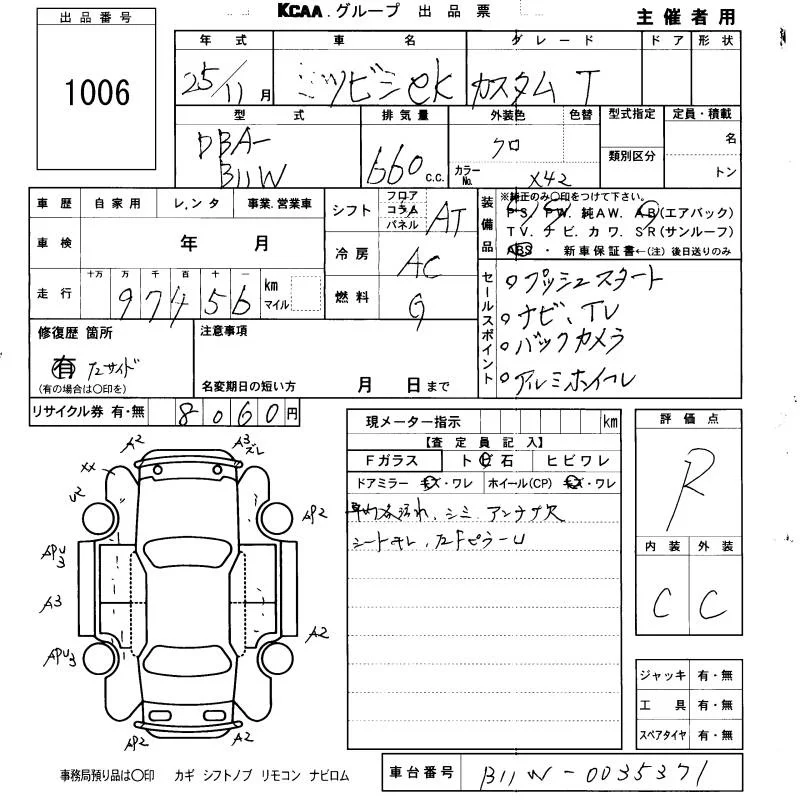 KCAA.グループ 出品票
主催者用
出品番号
1006
年式 車名 グレード ドア 形状
25/11月 ミツビシek カスタム T
型式 排気量 外装色 色替 型式指定 定員・積載
DBA-
B11W
660c.c. クロ
カラーNo. X42
類別区分
名
トン
車歴 自家用 レ.ンタ 事業.営業車
車検 年 月
十万 万 千 百 十 一
走行 97456 km マイル
シフト フロア コラム パネル AT
冷房 AC
燃料 G
装備品 ※純正のみ〇印をつけて下さい。
PS. PW. 純AW. AB(エアバック)
TV. ナビ. カワ. SR(サンルーフ)
ABS ・ 新車保証書←(注) 後日送りのみ
セールスポイント
プッシュスタート
ナビ、TV
バックカメラ
アルミホイール
修復歴 箇所
有
(有の場合は〇印を)
注意事項
名変期日の短い方 月 日まで
リサイクル券 有・無 8060円
現メーター指示 km
【査定員記入】
Fガラス トビ石 ヒビワレ
ドアミラー キズ・ワレ ホイール(CP) キズ・ワレ
汚れ、シミ アンテナ欠
シートキレ、
評価点
R
内装 外装
C C
ジャッキ 有・無
工具 有・無
スペアタイヤ 有・無
A2
A3 ズレ
XX
U2
AP2
APU3
A3
A2
APU3
AP2
A2
事務局預り品は〇印 カギ シフトノブ リモコン ナビロム
車台番号 B11W-0035371